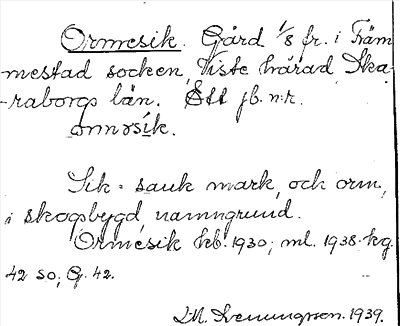 Ormesik. Gård 1/8 fr. i Främ
mestad socken, Viste härad, Ska-
-raborgs län. Ett jb. n:r.
ormǝsík.
Sik = sank mark, och orm,
i skogsbygd, namngrund.
Ormesik kb. 1930; ml. 1938. kg.
42 so; G. 42.
LM. Svenungsson. 1939.